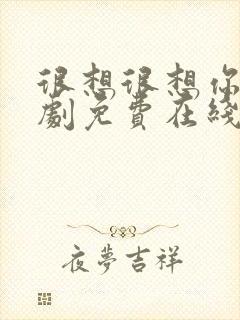 很想很想你
劇免費在綫
夜夢吉祥